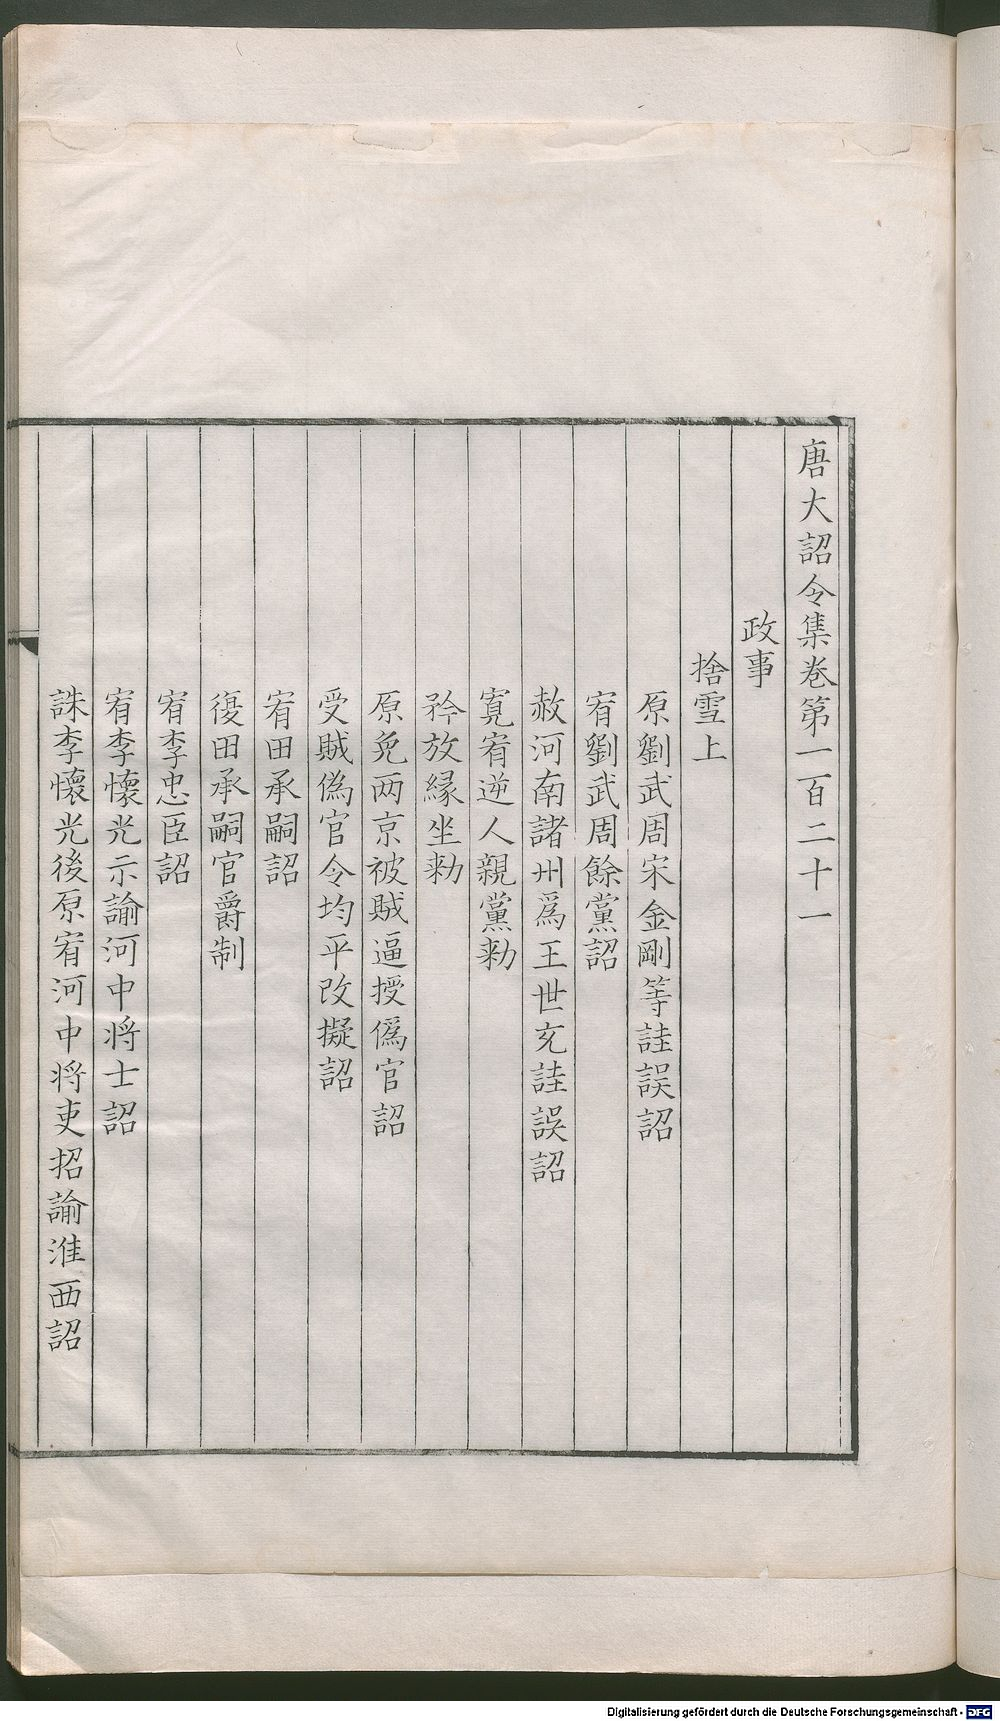 唐大詔令集卷第一百二十一
政事
捨雪上
原劉武周宋金剛等詿誤詔
宥劉武周餘黨詔
赦河南諸州爲王世充詿誤詔
寛宥逆人親黨勑
矜放縁坐勑
原免两京被賊逼授僞官詔
受賊僞官令均平改擬詔
宥田承嗣詔
復田承嗣官爵制
宥李忠臣詔
宥李懷光示諭河中将士詔
誅李懷光後原宥河中将吏招諭淮西詔
Digitalisierung gefördert durch die Deutsche Forschungsgemeinschaft - DFG